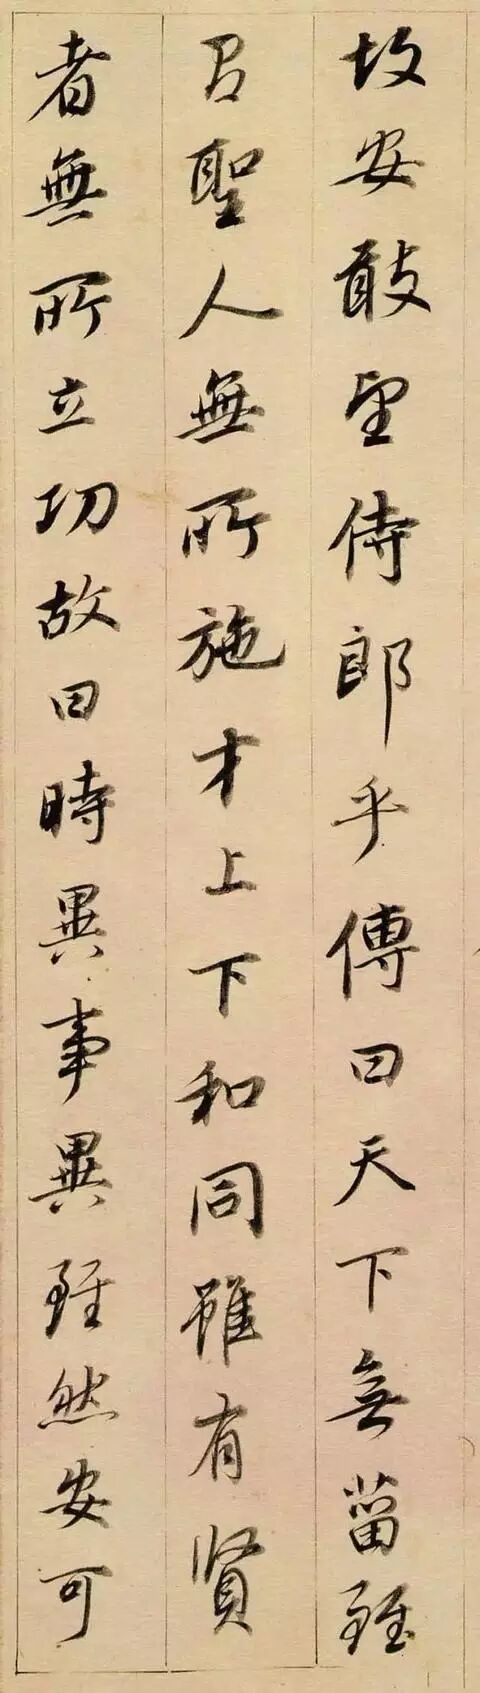 故安敢望侍郎乎傳曰天下無菑雖
有聖人無所施才上下和同雖有賢
者無所立功故曰時異事異雖然安可